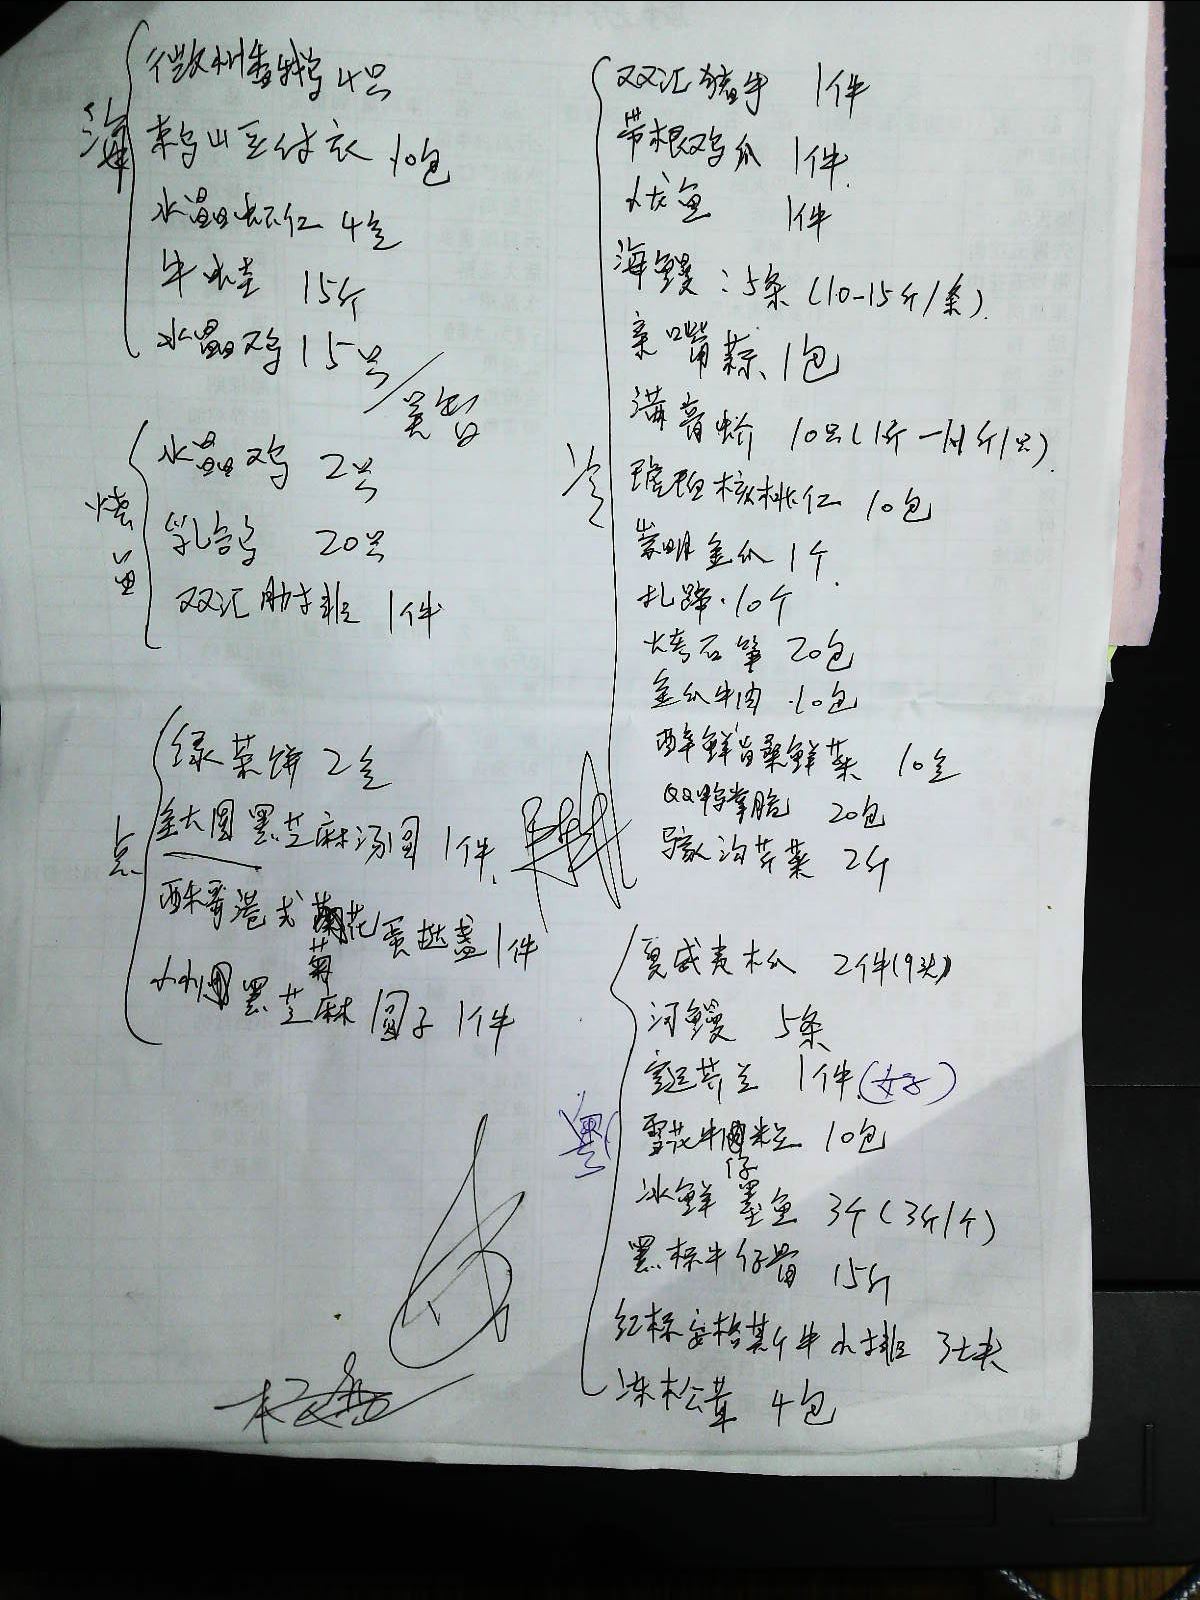 海
徽州香鹅 4只
东乌山豆付衣 10包
水晶虾仁 4盒
牛蛙 15斤
水晶鸡 15只
烧卤
水晶鸡 2只
乳鸽 20只
双汇肋排 1件
点
绿茶饼 2盒
全大圆黑芝麻汤圆 1件
酥哥港式菊花蛋挞盏 1件
小小圆黑芝麻圆子 1件
冷
双汇猪手 1件
带根鸡爪 1件
龙鱼 1件
海鳗:5条(10-15斤/条)
亲嘴蒜 1包
满膏蟹 10只(1斤
琥珀核桃仁 10包
崇明金瓜 1个
扎蹄·10个
石笋 20包
金瓜牛肉·10包
醉鲜旨桑鲜菜 10盒
QQ鸭掌脆 20包
马家沟芹菜 2斤
粤
夏威夷木瓜 2件(9头)
河鳗 5条
芥兰 1件
雪花牛肉粒 10包
冰鲜仔墨鱼 3个(3斤/个)
黑标牛仔骨 15斤
红标安格斯牛小排 3块
冻松茸 4包